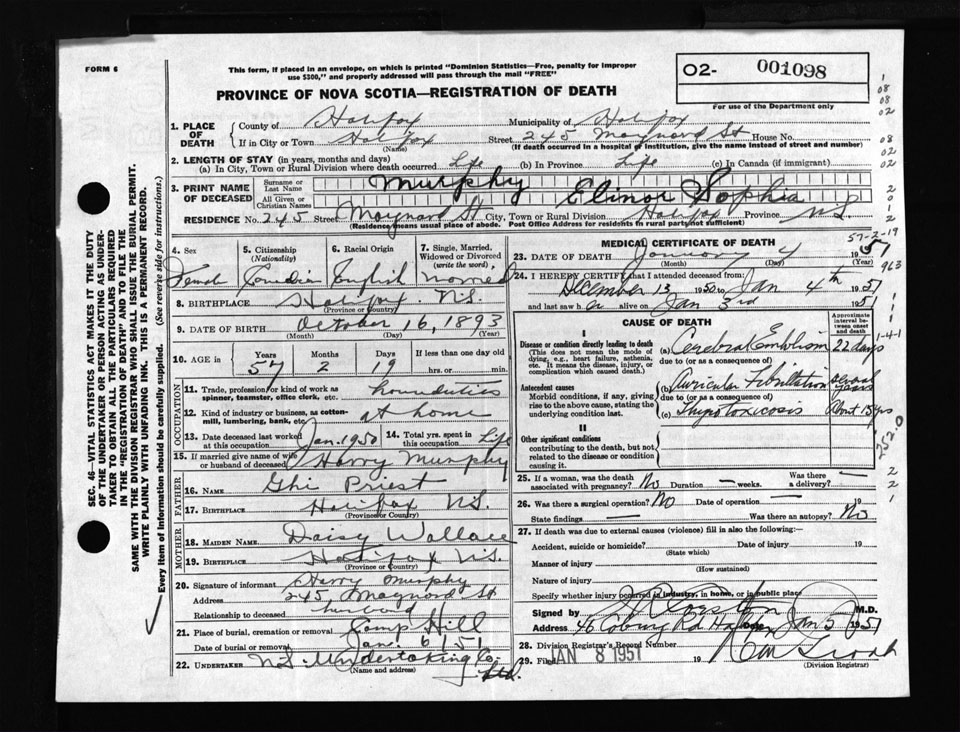 FORM 6
This form, if placed in an envelope, on which is printed "Dominion Statistics—Free, penalty for improper
use $300," and properly addressed will pass through the mail "FREE"
PROVINCE OF NOVA SCOTIA—REGISTRATION OF DEATH
O2- 001098
For use of the Department only
1. PLACE OF DEATH
County of Halifax Municipality of Halifax
If in City or Town Halifax Street 245 Maynard St House No.
(Name) (If death occurred in a hospital or institution, give the name instead of street and number)
2. LENGTH OF STAY (in years, months and days)
(a) In City, Town or Rural Division where death occurred Life (b) In Province Life (c) In Canada (if immigrant)
3. PRINT NAME OF DECEASED
Surname or Last Name Murphy
All Given or Christian Names Elinor Sophia
RESIDENCE No. 245 Street Maynard St City, Town or Rural Division Halifax Province N.S
(Residence means usual place of abode. Post Office Address for residents in rural parts not sufficient)
4. Sex
5. Citizenship (Nationality) Canadian
6. Racial Origin English
7. Single, Married, Widowed or Divorced (write the word)
8. BIRTHPLACE Halifax N.S.
(Province or Country)
9. DATE OF BIRTH October 16, 1893
(Month) (Day) (Year)
10. AGE in Years Months Days If less than one day old
57 2 19 hrs. or min.
OCCUPATION
11. Trade, profession or kind of work as spinner, teamster, office clerk, etc.
12. Kind of industry or business, as cotton-mill, lumbering, bank, etc. at home
13. Date deceased last worked at this occupation Jan. 1950
14. Total yrs. spent in this occupation Life
15. If married give name of wife or husband of deceased Harry Murphy
FATHER
16. NAME Priest
17. BIRTHPLACE Halifax N.S.
(Province or Country)
MOTHER
18. MAIDEN NAME Daisy Wallace
19. BIRTHPLACE Halifax N.S.
(Province or Country)
20. Signature of informant Harry Murphy
Address 245 Maynard St
Relationship to deceased husband
21. Place of burial, cremation or removal Camp Hill
Date of burial or removal Jan. 6 51
22. UNDERTAKER N.S. Undertaking Co. Ltd.
(Name and address)
SEC. 46—VITAL STATISTICS ACT MAKES IT THE DUTY
OF THE UNDERTAKER OR PERSON ACTING AS UNDER-
TAKER TO OBTAIN ALL THE PARTICULARS REQUIRED
IN THE "REGISTRATION OF DEATH" AND TO FILE THE
SAME WITH THE DIVISION REGISTRAR WHO SHALL ISSUE THE BURIAL PERMIT.
WRITE PLAINLY WITH UNFADING INK. THIS IS A PERMANENT RECORD.
Every item of Information should be carefully supplied. (See reverse side for instructions.)
MEDICAL CERTIFICATE OF DEATH
57-2-19
23. DATE OF DEATH January 4 1951
(Month) (Day) (Year)
24. I HEREBY CERTIFY that I attended deceased from:
December 13 1950 to Jan 4th 1951
and last saw her alive on Jan 3rd 1951
CAUSE OF DEATH
Approximate interval between onset and death
I
Disease or condition directly leading to death
(This does not mean the mode of dying, e.g., heart failure, asthenia, etc. It means the disease, injury, or complication which caused death.)
(a) Cerebral Embolism 22 days
due to (or as a consequence of)
Antecedent causes
Morbid conditions, if any, giving rise to the above cause, stating the underlying condition last.
(b) Auricular Fibrillation several years
due to (or as a consequence of)
(c) Thyrotoxicosis about 15 yrs
II
Other significant conditions
contributing to the death, but not related to the disease or condition causing it.
25. If a woman, was the death associated with pregnancy? No Duration weeks. Was there a delivery?
26. Was there a surgical operation? No Date of operation 19
State findings Was there an autopsy? No
27. If death was due to external causes (violence) fill in also the following:
Accident, suicide or homicide? Date of injury 19
(State which)
Manner of injury
(How sustained)
Nature of injury
Specify whether injury occurred in industry, in home, or in public place
Signed by M.D.
Address 46 Coburg Rd Date Jan 5 1951
28. Division Registrar's Record Number
29. Filed JAN 8 1951 19
(Division Registrar)